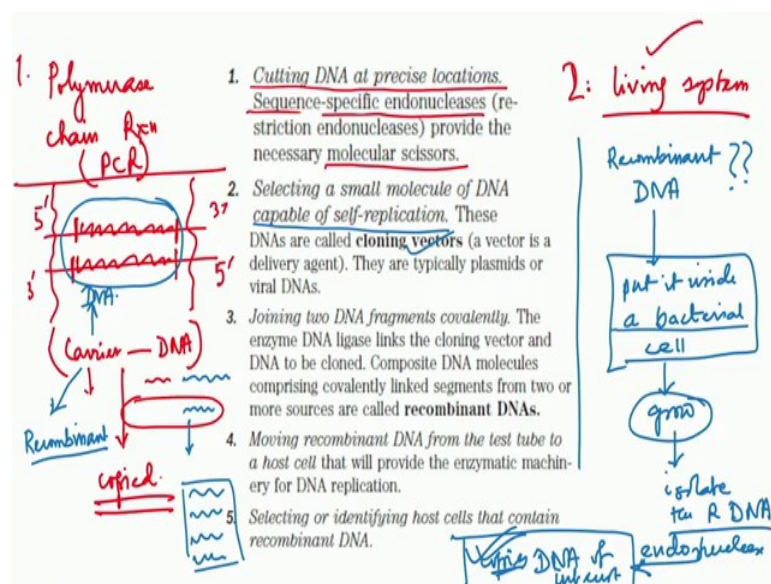 1. Polymerase
chain Rxn
(PCR)
5' 3'
3' 5'
DNA.
(Carrier — DNA)
Recombinant
copied.
1. Cutting DNA at precise locations.
Sequence-specific endonucleases (re-
striction endonucleases) provide the
necessary molecular scissors.
2. Selecting a small molecule of DNA
capable of self-replication. These
DNAs are called cloning vectors (a vector is a
delivery agent). They are typically plasmids or
viral DNAs.
3. Joining two DNA fragments covalently. The
enzyme DNA ligase links the cloning vector and
DNA to be cloned. Composite DNA molecules
comprising covalently linked segments from two or
more sources are called recombinant DNAs.
4. Moving recombinant DNA from the test tube to
a host cell that will provide the enzymatic machin-
ery for DNA replication.
5. Selecting or identifying host cells that contain
recombinant DNA.
2: living system
Recombinant ??
DNA
put it inside
a bacterial
cell
grow
isolate
the R DNA
endonuclease
DNA of
interest